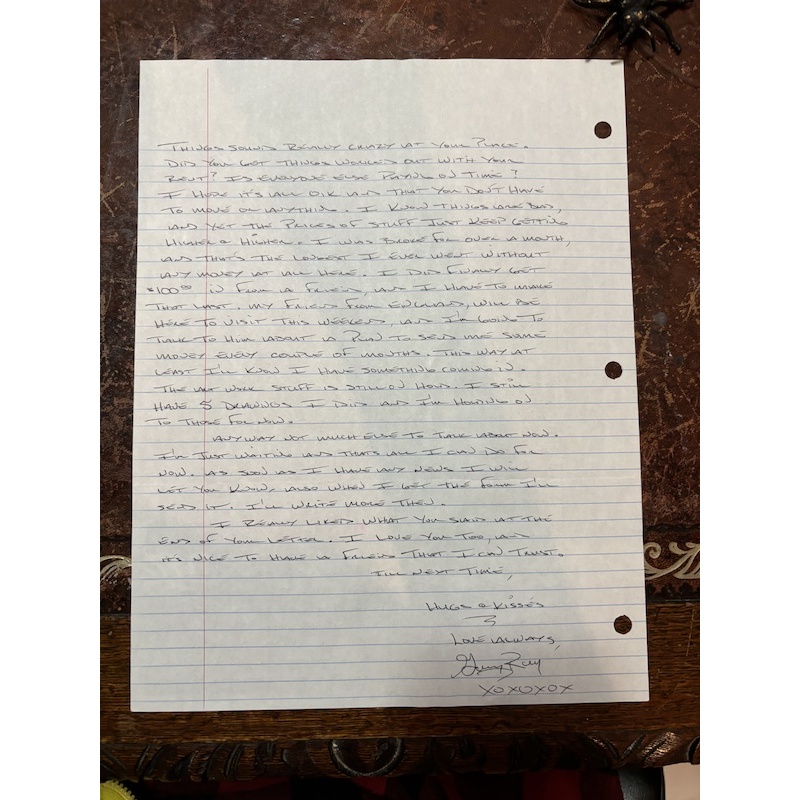 THINGS SOUND REALLY CRAZY AT YOUR PLACE.
DID YOU GET THINGS WORKED OUT WITH YOUR
RENT? IS EVERYONE ELSE PAYING ON TIME?
I HOPE IT'S ALL O.K AND THAT YOU DON'T HAVE
TO MOVE OR ANYTHIN. I KNOW THINGS ARE BAD,
AND YET THE PRICES OF STUFF JUST KEEP GETTING
HIGHER & HIGHER. I WAS BROKE FOR OVER A MONTH,
AND THAT'S THE LONGEST I EVER WENT WITHOUT
ANY MONEY AT ALL HERE. I DID FINALLY GET
$100.00 IN FROM A FRIEND, AND I HAVE TO MAKE
THAT LAST. MY FRIEND FROM ENGLAND, WILL BE
HERE TO VISIT THIS WEEKEND, AND I'M GOING TO
TALK TO HIM ABOUT A PLAN TO SEND ME SOME
MONEY EVERY COUPLE OF MONTHS. THIS WAY AT
LEAST I'LL KNOW I HAVE SOMETHING COMING IN.
THE ART WORK STUFF IS STILL ON HOLD. I STILL
HAVE 5 DRAWINGS I DID AND I'M HOLDING ON
TO THOSE FOR NOW.
ANYWAY NOT MUCH ELSE TO TALK ABOUT NOW.
I'M JUST WAITING AND THATS ALL I CAN DO FOR
NOW. AS SOON AS I HAVE ANY NEWS I WILL
LET YOU KNOW, ALSO WHEN I GET THE FORM I'LL
SEND IT. I'LL WRITE MORE THEN.
I REALLY LIKED WHAT YOU SAID AT THE
END OF YOUR LETTER. I LOVE YOU TOO, AND
IT'S NICE TO HAVE A FRIEND THAT I CAN TRUST.
TILL NEXT TIME,
HUGS & KISSES
LOVE ALWAYS,
XOXOXOX